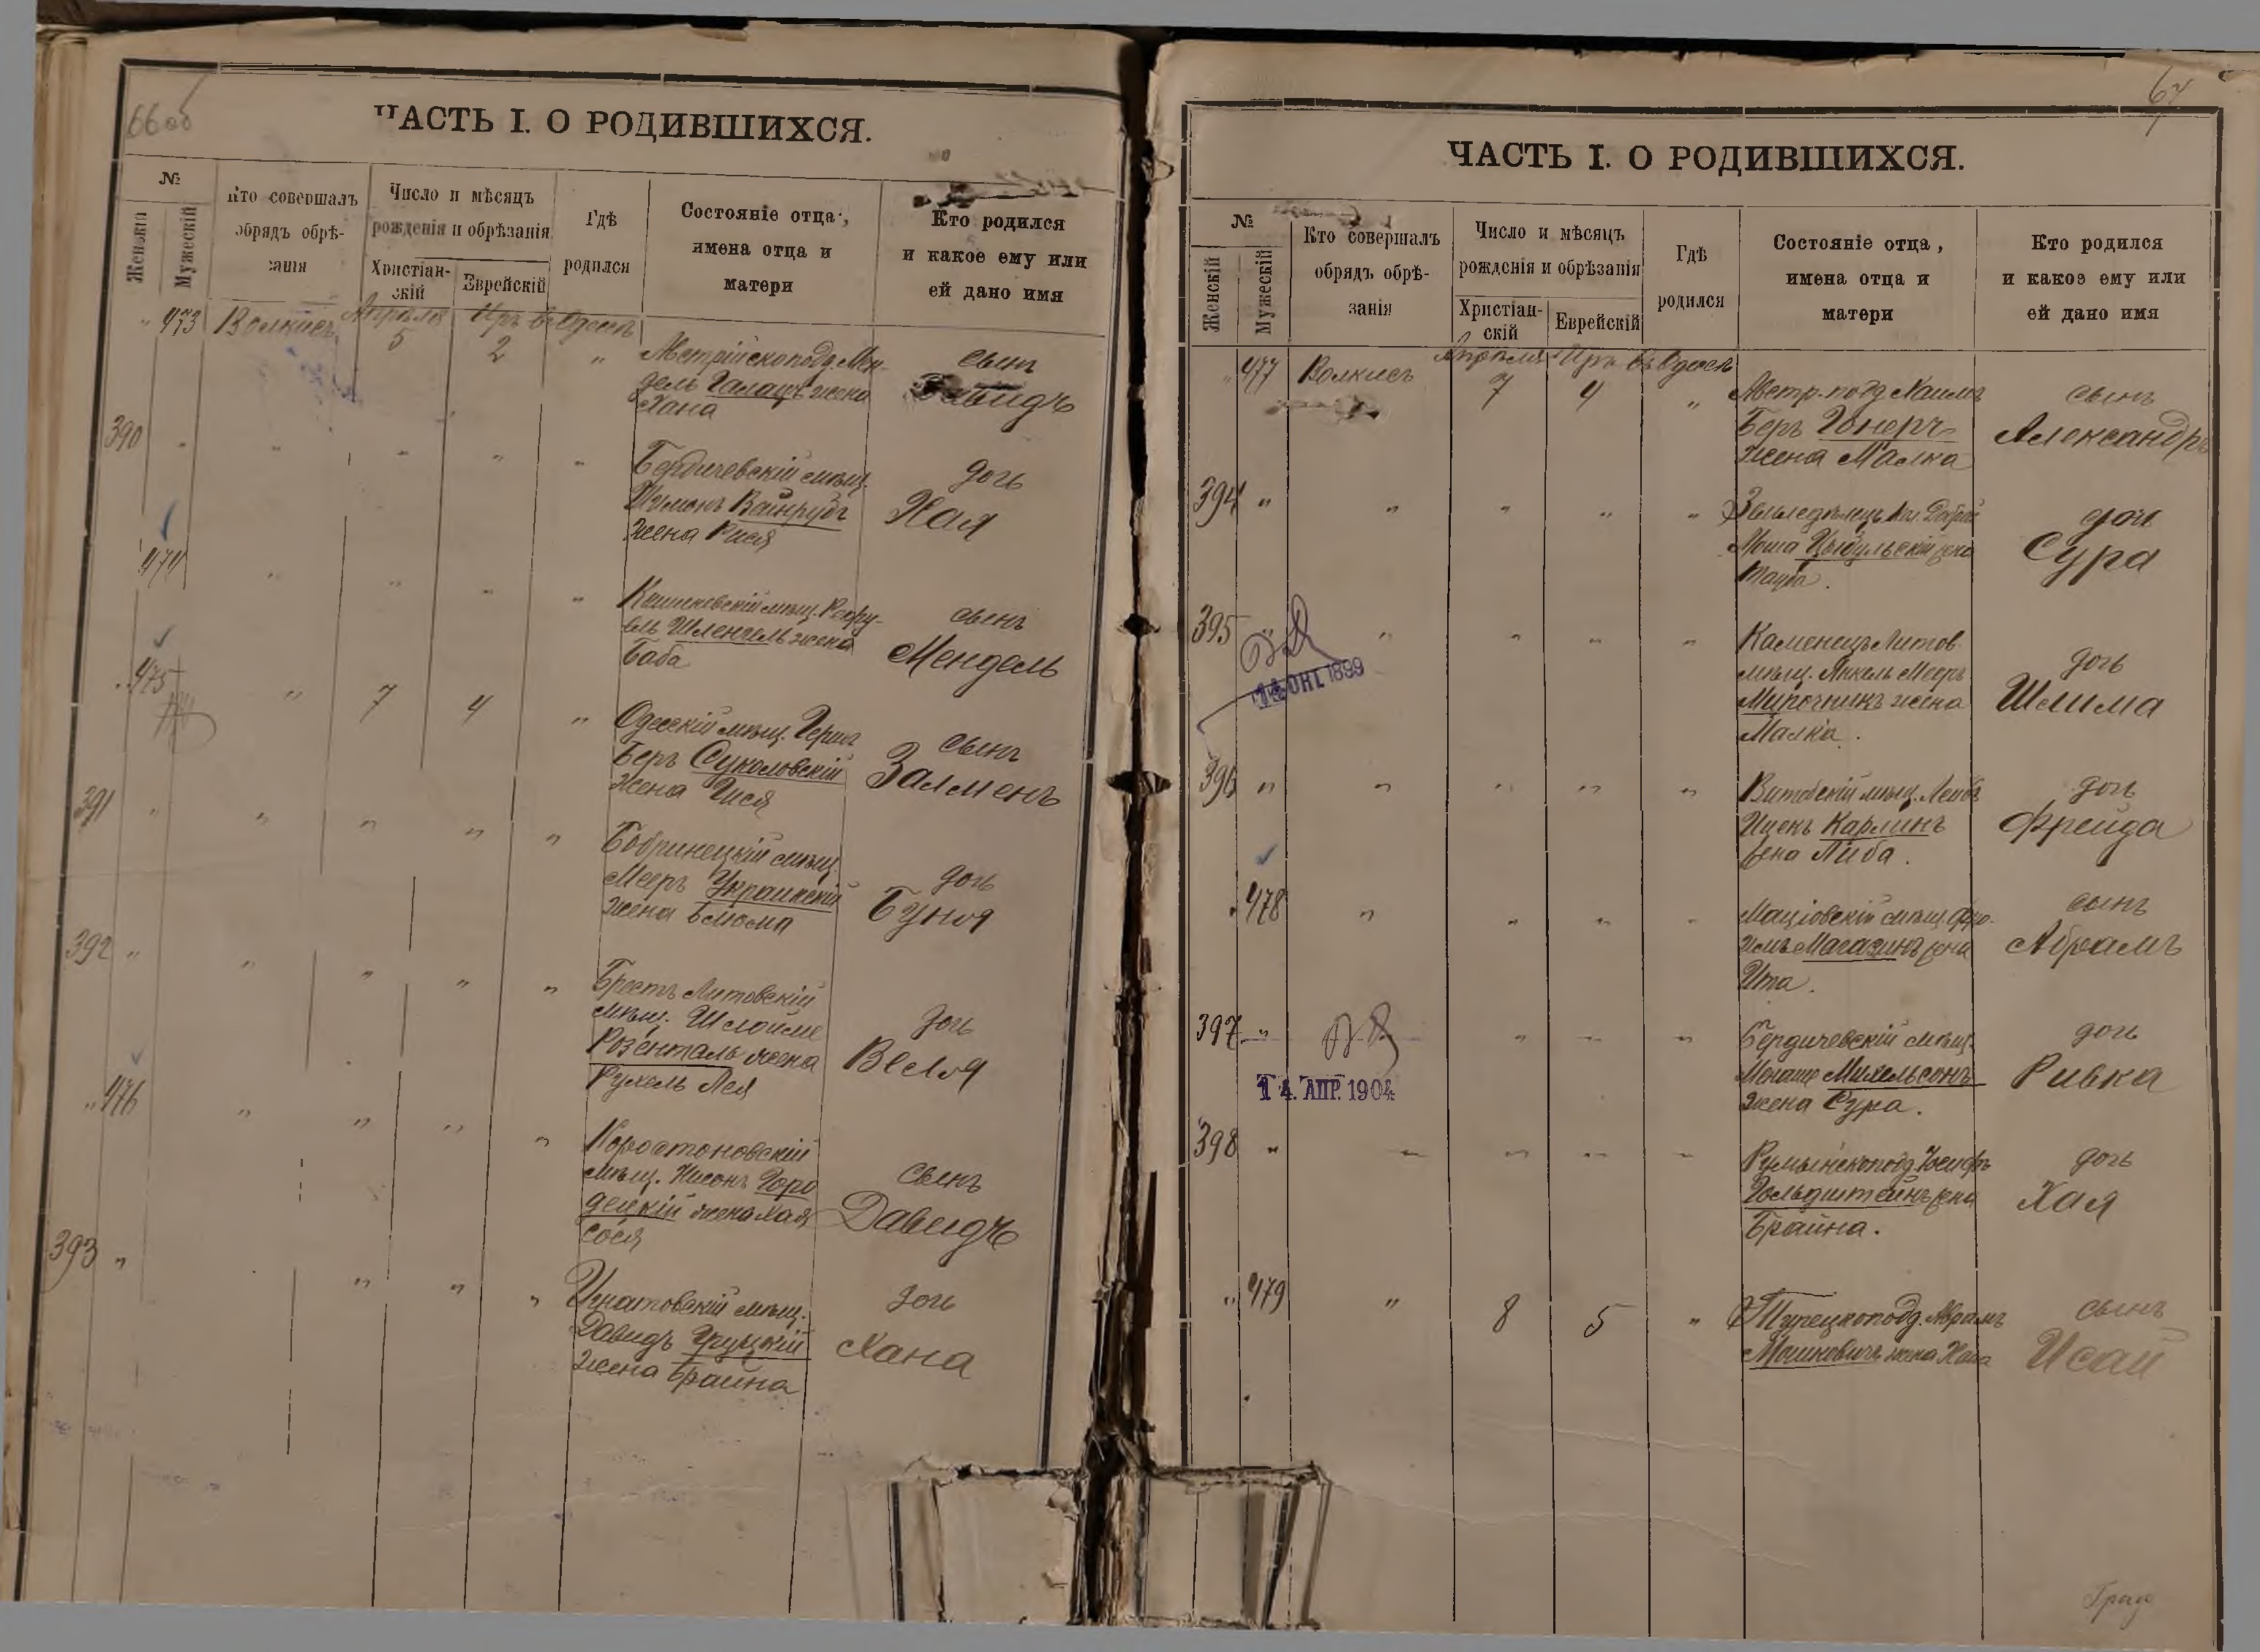 66об
ЧАСТЬ I. О РОДИВШИХСЯ.
№
Женскій
Мужескій
Кто совершалъ
обрядъ обрѣ-
занія
Число и мѣсяцъ
рожденія и обрѣзанія
Христіан-
скій
Еврейскій
Гдѣ
родился
Состояніе отца,
имена отца и
матери
Кто родился
и какое ему или
ей дано имя
" 473 Волкисъ Апрѣля Иръ въ Одессѣ
5 2 " Австрійскопод. Мен-
дель Галацъ жена
Хана
сынъ
Давидъ
390 " " " " "
Бердичевскій мѣщ.
Шулимъ Вайнрубъ
жена Рися
дочь
Хая
" 474 " " " "
Кишиневскій мѣщ.
Шленгель жена
Баба
сынъ
Мендель
" 475 " 7 4 "
Одесскій мѣщ. Герш
Беръ Суколовскій
жена Гися
сынъ
Залменъ
391 " " " " "
Бобринецкій мѣщ.
Мееръ Украинскій
жена
дочь
Буня
392 " " " " "
Брестъ Литовскій
мѣщ. Шлойме
Розенталь жена
Рухель Лея
дочь
Веля
" 476 " " " "
мѣщ. Нисонъ Горо
децкій жена Хая
Сося
сынъ
Давидъ
393 " " " "
Игнатовскій мѣщ.
Давидъ
жена Брайна
дочь
Хана
67
ЧАСТЬ I. О РОДИВШИХСЯ.
№
Женскій
Мужескій
Кто совершалъ
обрядъ обрѣ-
занія
Число и мѣсяцъ
рожденія и обрѣзанія
Христіан-
скій
Еврейскій
Гдѣ
родился
Состояніе отца,
имена отца и
матери
Кто родился
и какое ему или
ей дано имя
" 477 Волкисъ Апрѣля Иръ въ Одессѣ
7 4 " Австр. подд. Хаимъ
Беръ Гонеръ
жена Малка
сынъ
Александръ
394 " " " " "
Земледѣлецъ кол. Доброй
Моша Цыбульскій жена
Тауба.
дочь
Сура
395 " " " " "
14 ОКТ. 1899
Каменецъ Литов.
мѣщ. Янкель Мееръ
Мирочникъ жена
Малка.
дочь
Шлима
396 " " " " "
Витебскій мѣщ. Лейбъ
Ицекъ Карлинъ
жена Либа.
дочь
Фрейда
" 478 " " " "
Маціовскій мѣщ. Фро-
имъ Магазинъ жена
Ита.
сынъ
Абрамъ
397 " " " "
14. АПР. 1904
Бердичевскій мѣщ.
Менаше Михельсонъ
жена Сура.
дочь
Ривка
398 " " " " "
Румынскопод. Іосифъ
Гольдштейнъ жена
Брайна.
дочь
Хая
" 479 " 8 5 "
Турецкопод. Абрамъ
Мошковичъ жена Хана
сынъ
Исай